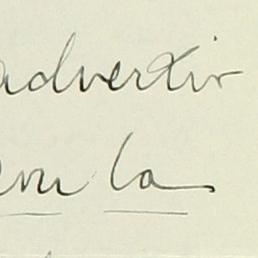 advertir
la